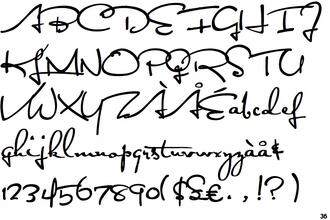 ABCDEFGHIJ
KLMNOPQRSTU
VWXYZÀÅÉabcdef
ghijklmnopqrstuvwxyzàå&
1234567890($£€.,!?)
36